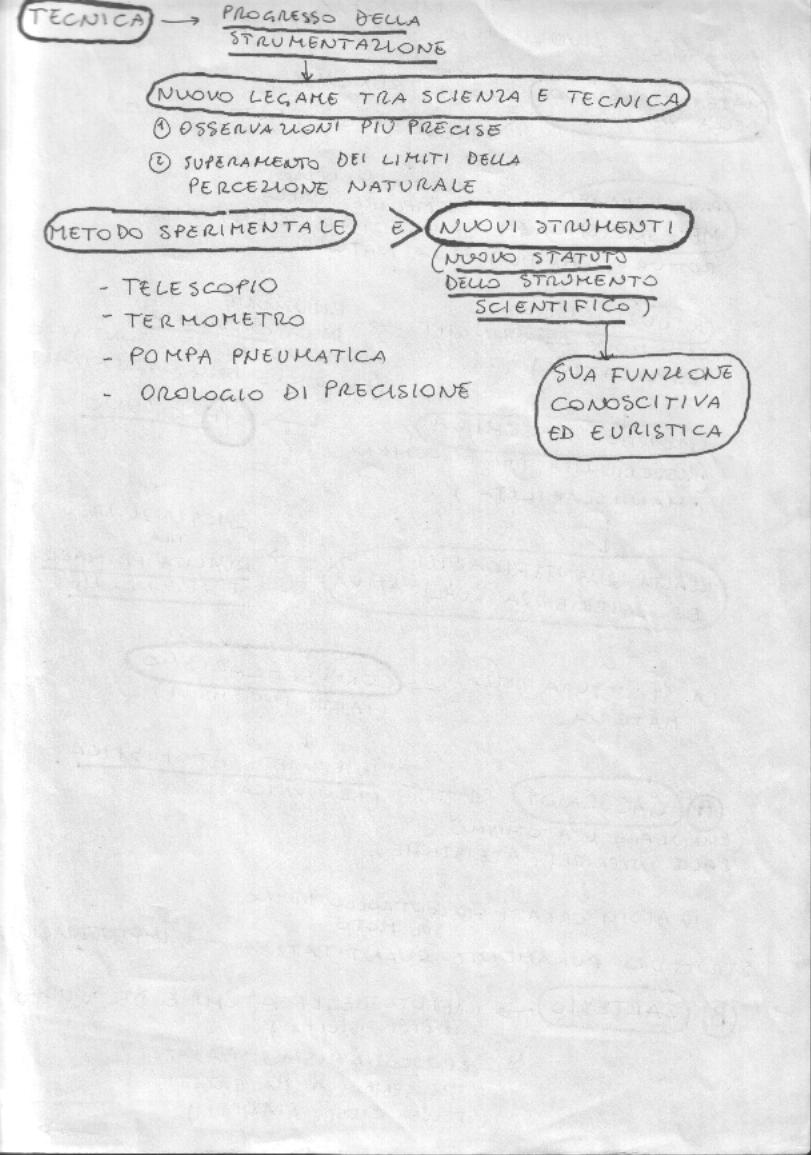 TECNICA → PROGRESSO DELLA
STRUMENTAZIONE
NUOVO LEGAME TRA SCIENZA E TECNICA
① OSSERVAZIONI PIÙ PRECISE
② SUPERAMENTO DEI LIMITI DELLA
PERCEZIONE NATURALE
METODO SPERIMENTALE E > NUOVI STRUMENTI
(NUOVO STATUTO
DELLO STRUMENTO
SCIENTIFICO)
- TELESCOPIO
- TERMOMETRO
- POMPA PNEUMATICA
- OROLOGIO DI PRECISIONE
SUA FUNZIONE
CONOSCITIVA
ED EURISTICA